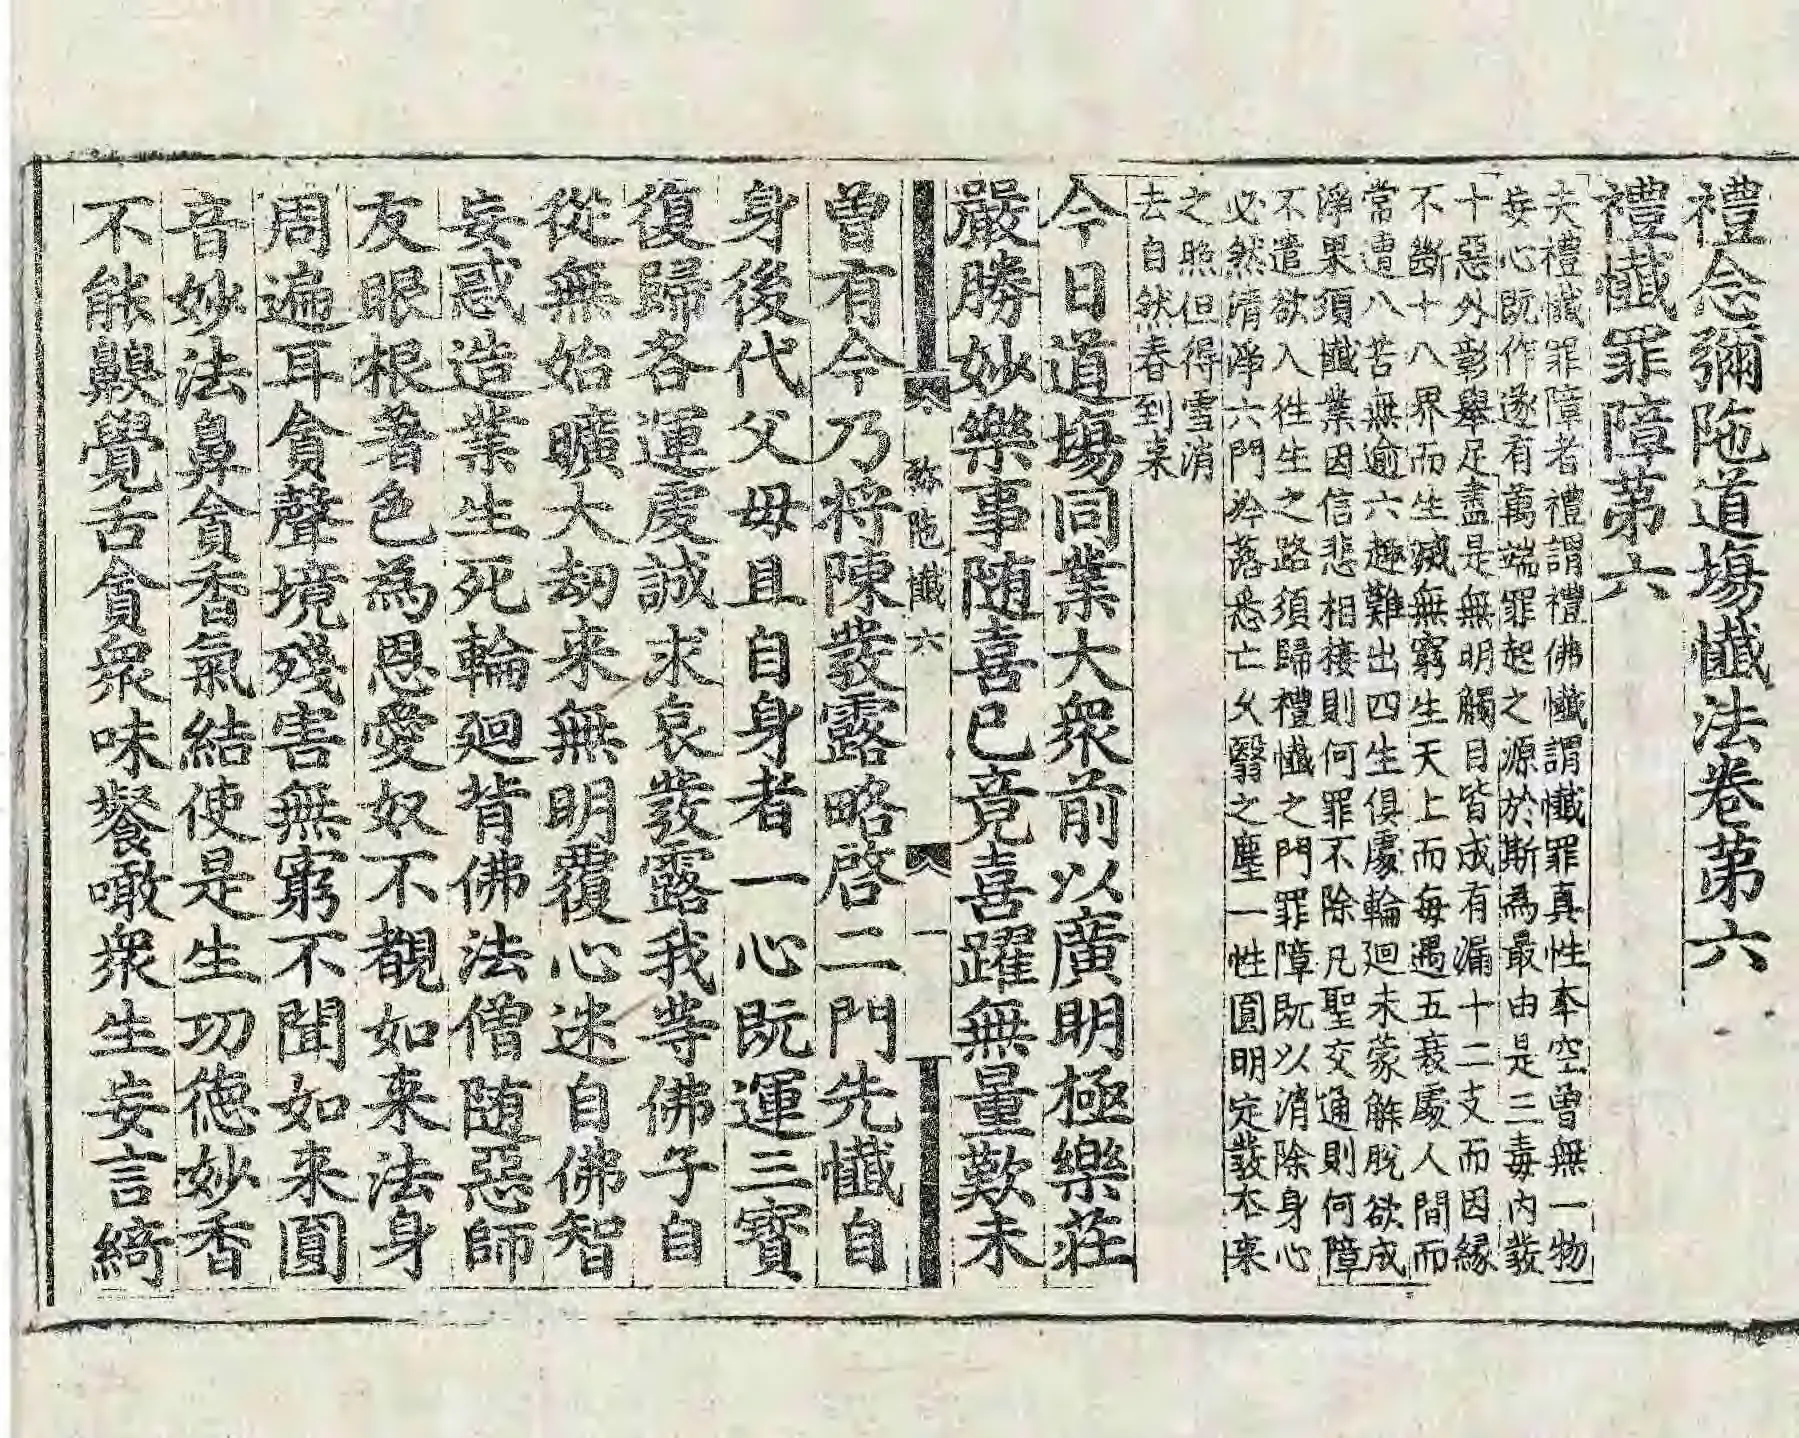 禮念彌陁道塲懺法卷苐六
禮懺罪障苐六
夫禮懺罪障者禮謂禮佛懺謂懺罪真性夲空曾無一物
妄心旣作遂有萬端罪起之源於斯為最由是三毒內發
十惡外彰舉足盡是無明觸目皆成有漏十二支而因緣
不斷十八界而生滅無窮生天上而每遇五衰處人間而
常遭八苦無逾六趣難出四生俱處輪廻未蒙解脫欲成
淨果須懺業因信悲相接則何罪不除凡聖交通則何障
不遣欲入徃生之路須歸禮懺之門罪障旣以消除身心
必然清淨六門冷落悉亡久翳之塵一性圓明定發夲來
之照但得雪消
去自然春到来
今日道塲同業大衆前以廣明極樂莊
嚴勝妙樂事随喜已竟喜躍無量歎未
弥陁懺六 一
曾有今乃將陳發露略啓二門先懺自
身後代父母且自身者一心旣運三寶
復歸各運虔誠求哀發露我等佛子自
從無始曠大劫来無明覆心迷自佛智
妄惑造業生死輪廻背佛法僧随惡師
友眼根著色為恩愛奴不覩如来法身
周遍耳貪聲境殘害無窮不聞如來圓
音妙法鼻貪香氣結使是生功德妙香
不能齅覺舌貪衆味餮噉衆生妄言綺